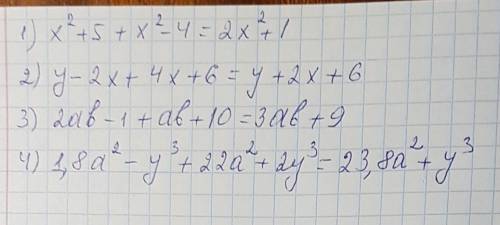 1) x²+5+x²-4=2x²+1
2) y-2x+4x+6=y+2x+6
3) 2ab-1+ab+10=3ab+9
4) 1,8a²-y³+22a²+2y³=23,8a²+y³